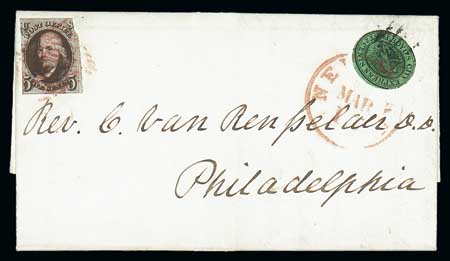 POST OFFICE
5 5
NEW
MAR
Rev. C. Van Rensselaer D.D.
Philadelphia